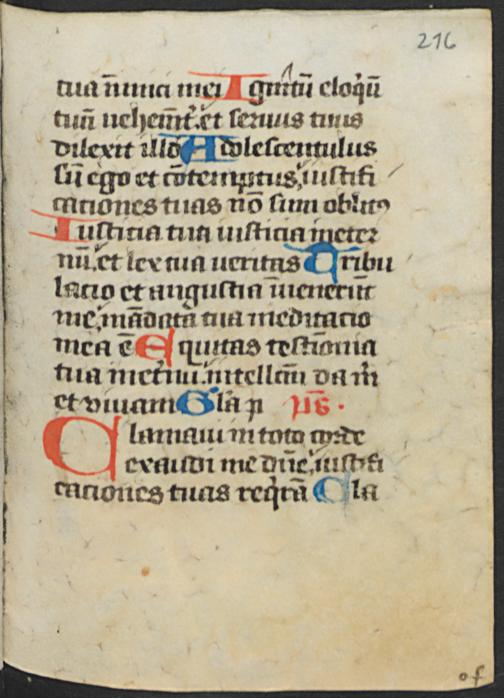 216
tua ninnci mei Ignitū eloqͥū
tuū uehemt᷑.et seruus tuus
dilexit illō Adolescentulus
sū ego et cōtemptus,iustifi
cationes tuas nō sum oblitꝰ
Iusticia tua iusticia ineter
nū.et lex tua ueritas Tribu
lacio et angustia īuenerūt
me,mādata tua meditacio
mea ē Equitas testīonia
tua ineternū.intellcm̄ da m̄
et viuam Gla p ps̄.
Clamaui in toto corde
exaudi me dn̄e,iustifi
cationes tuas reqͥrā Cla
of